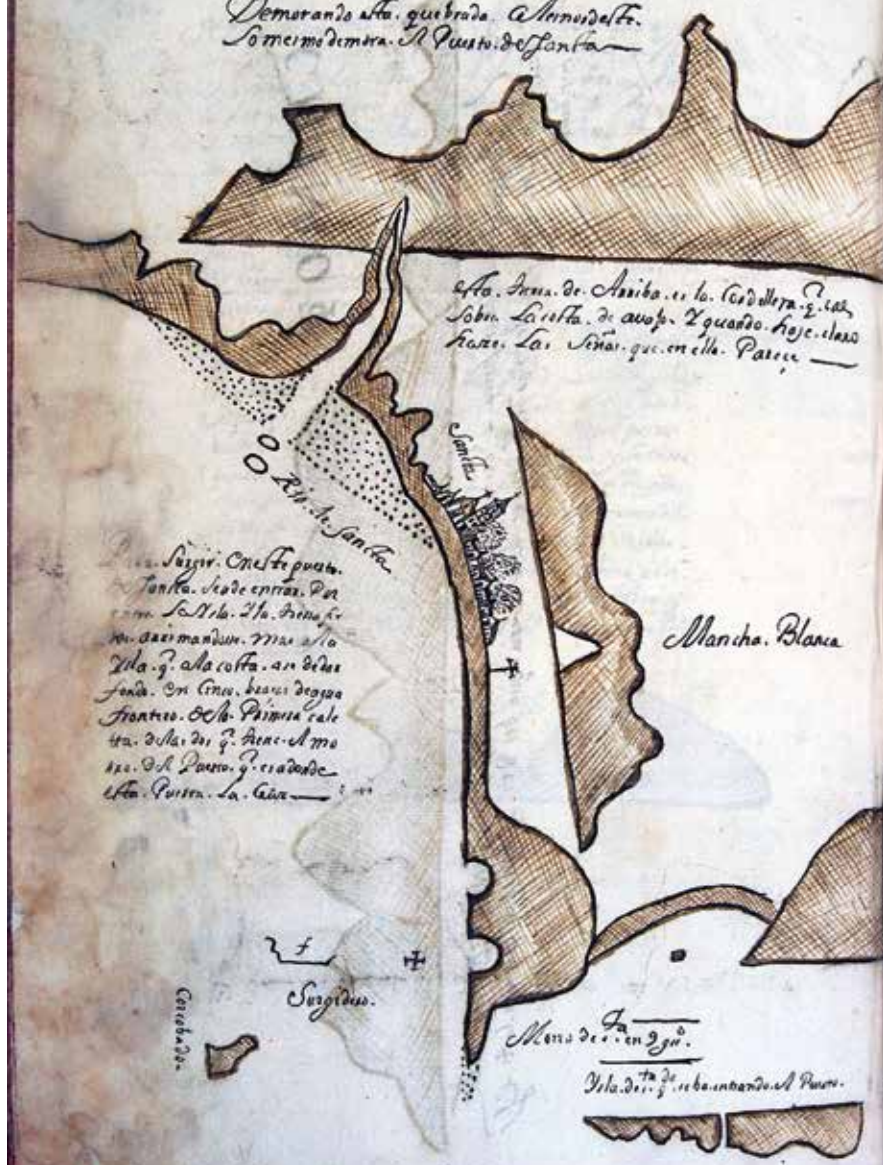 Demorando esta. quebrada. Alernordeste.
Lo mesmo demora. El Puerto. de Sancta
esta. tierra. de. Arriba. es la. Cordellera. q̃. cae
sobre. La costa. de avajo. Y quando. haze. claro
haze. Las Señas. que. en ella. Pareçe
Sancta
Rio de Sancta
Surgir. En este puerto.
de Sancta. se a de entrar. Por
entre. La Ysla. Y la. tierra fir
me. arrimandose. mas a la
Ysla. q̃. a la costa. an de dar
fondo. en Cinco. braças de agua
frontero. de la. Primera cale
tta. de las dos q̃. tiene. el mo
rro. Del Puerto. q̃. es adonde
esta. Puesta. La. Cruz
Mancha. Blanca
Surgidero.
Corcobado.
Morro de S.ta en 9 gr.os
Ysla. de S.ta de q̃. se ba. entrando. Al Puerto.